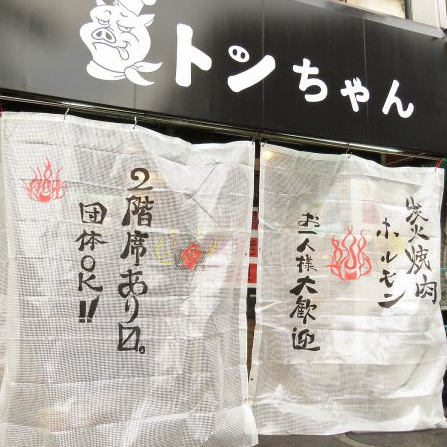 トンちゃん
炭火焼肉
ホルモン
お一人様大歓迎
2階席あり〼。
団体OK!!